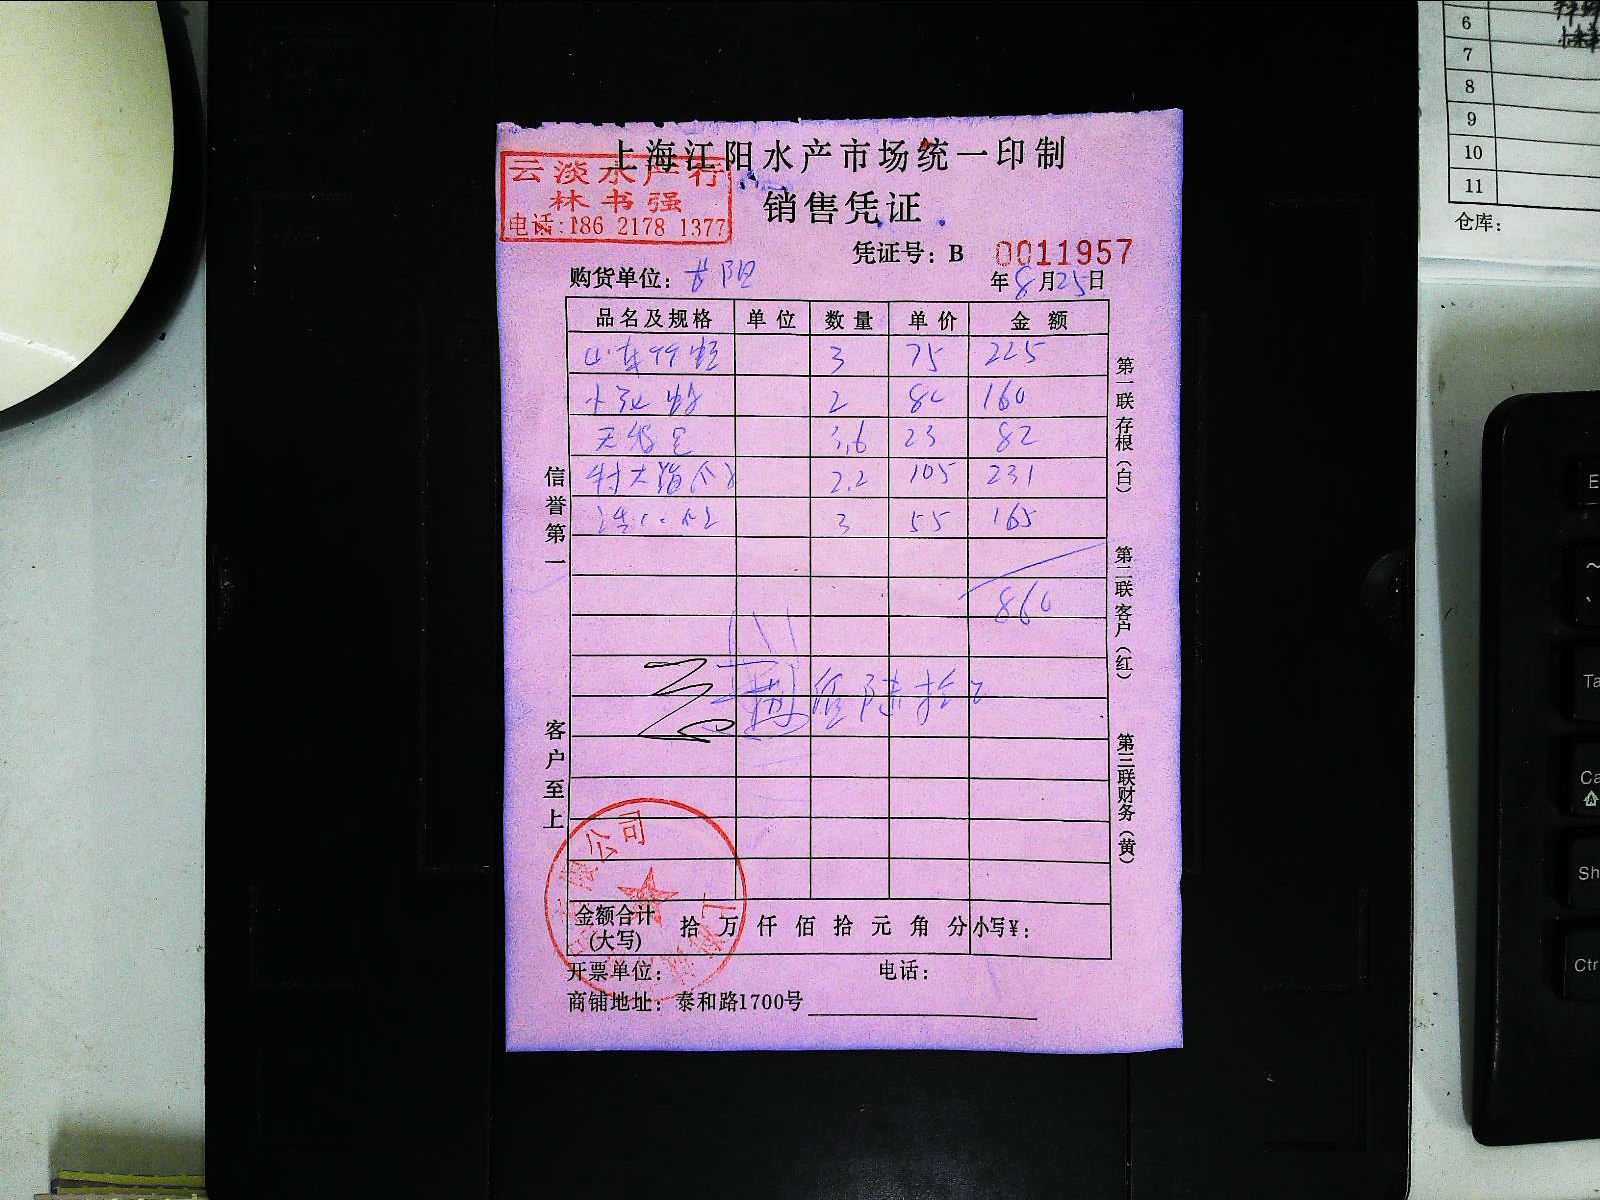 上海江阳水产市场统一印制
云淡水产行
林书强
电话:186 2178 1377
销售凭证
凭证号: B 0011957
购货单位:
年8月25日
品名及规格 单位 数量 单价 金额
3 75 225
小 2 80 160
3.6 23 82
2.2 105 231
3 55 165
860
佰陆拾
信誉第一
客户至上
第一联存根(白)
第二联客户(红)
第三联财务(黄)
公司
金额合计(大写) 拾 万 仟 佰 拾 元 角 分 小写¥:
开票单位: 电话:
商铺地址: 泰和路1700号
6
7
8
9
10
11
仓库:
E
~
Ta
Ca
Sh
Ctr